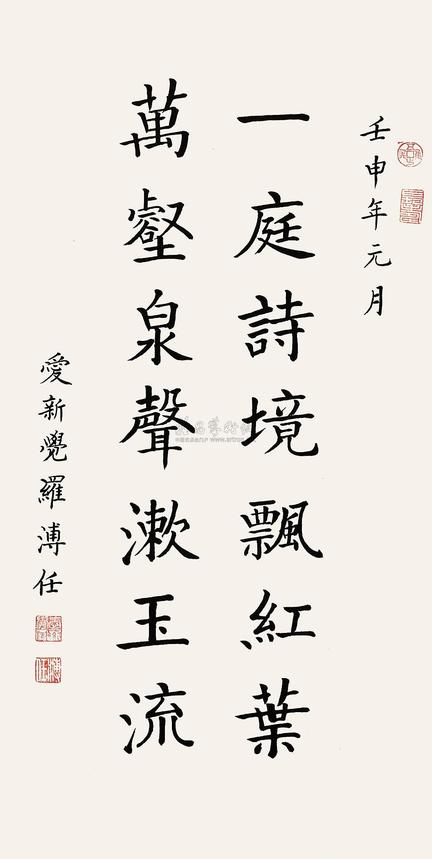 壬申年元月
一庭詩境飄紅葉
萬壑泉聲漱玉流
愛新覺羅溥任